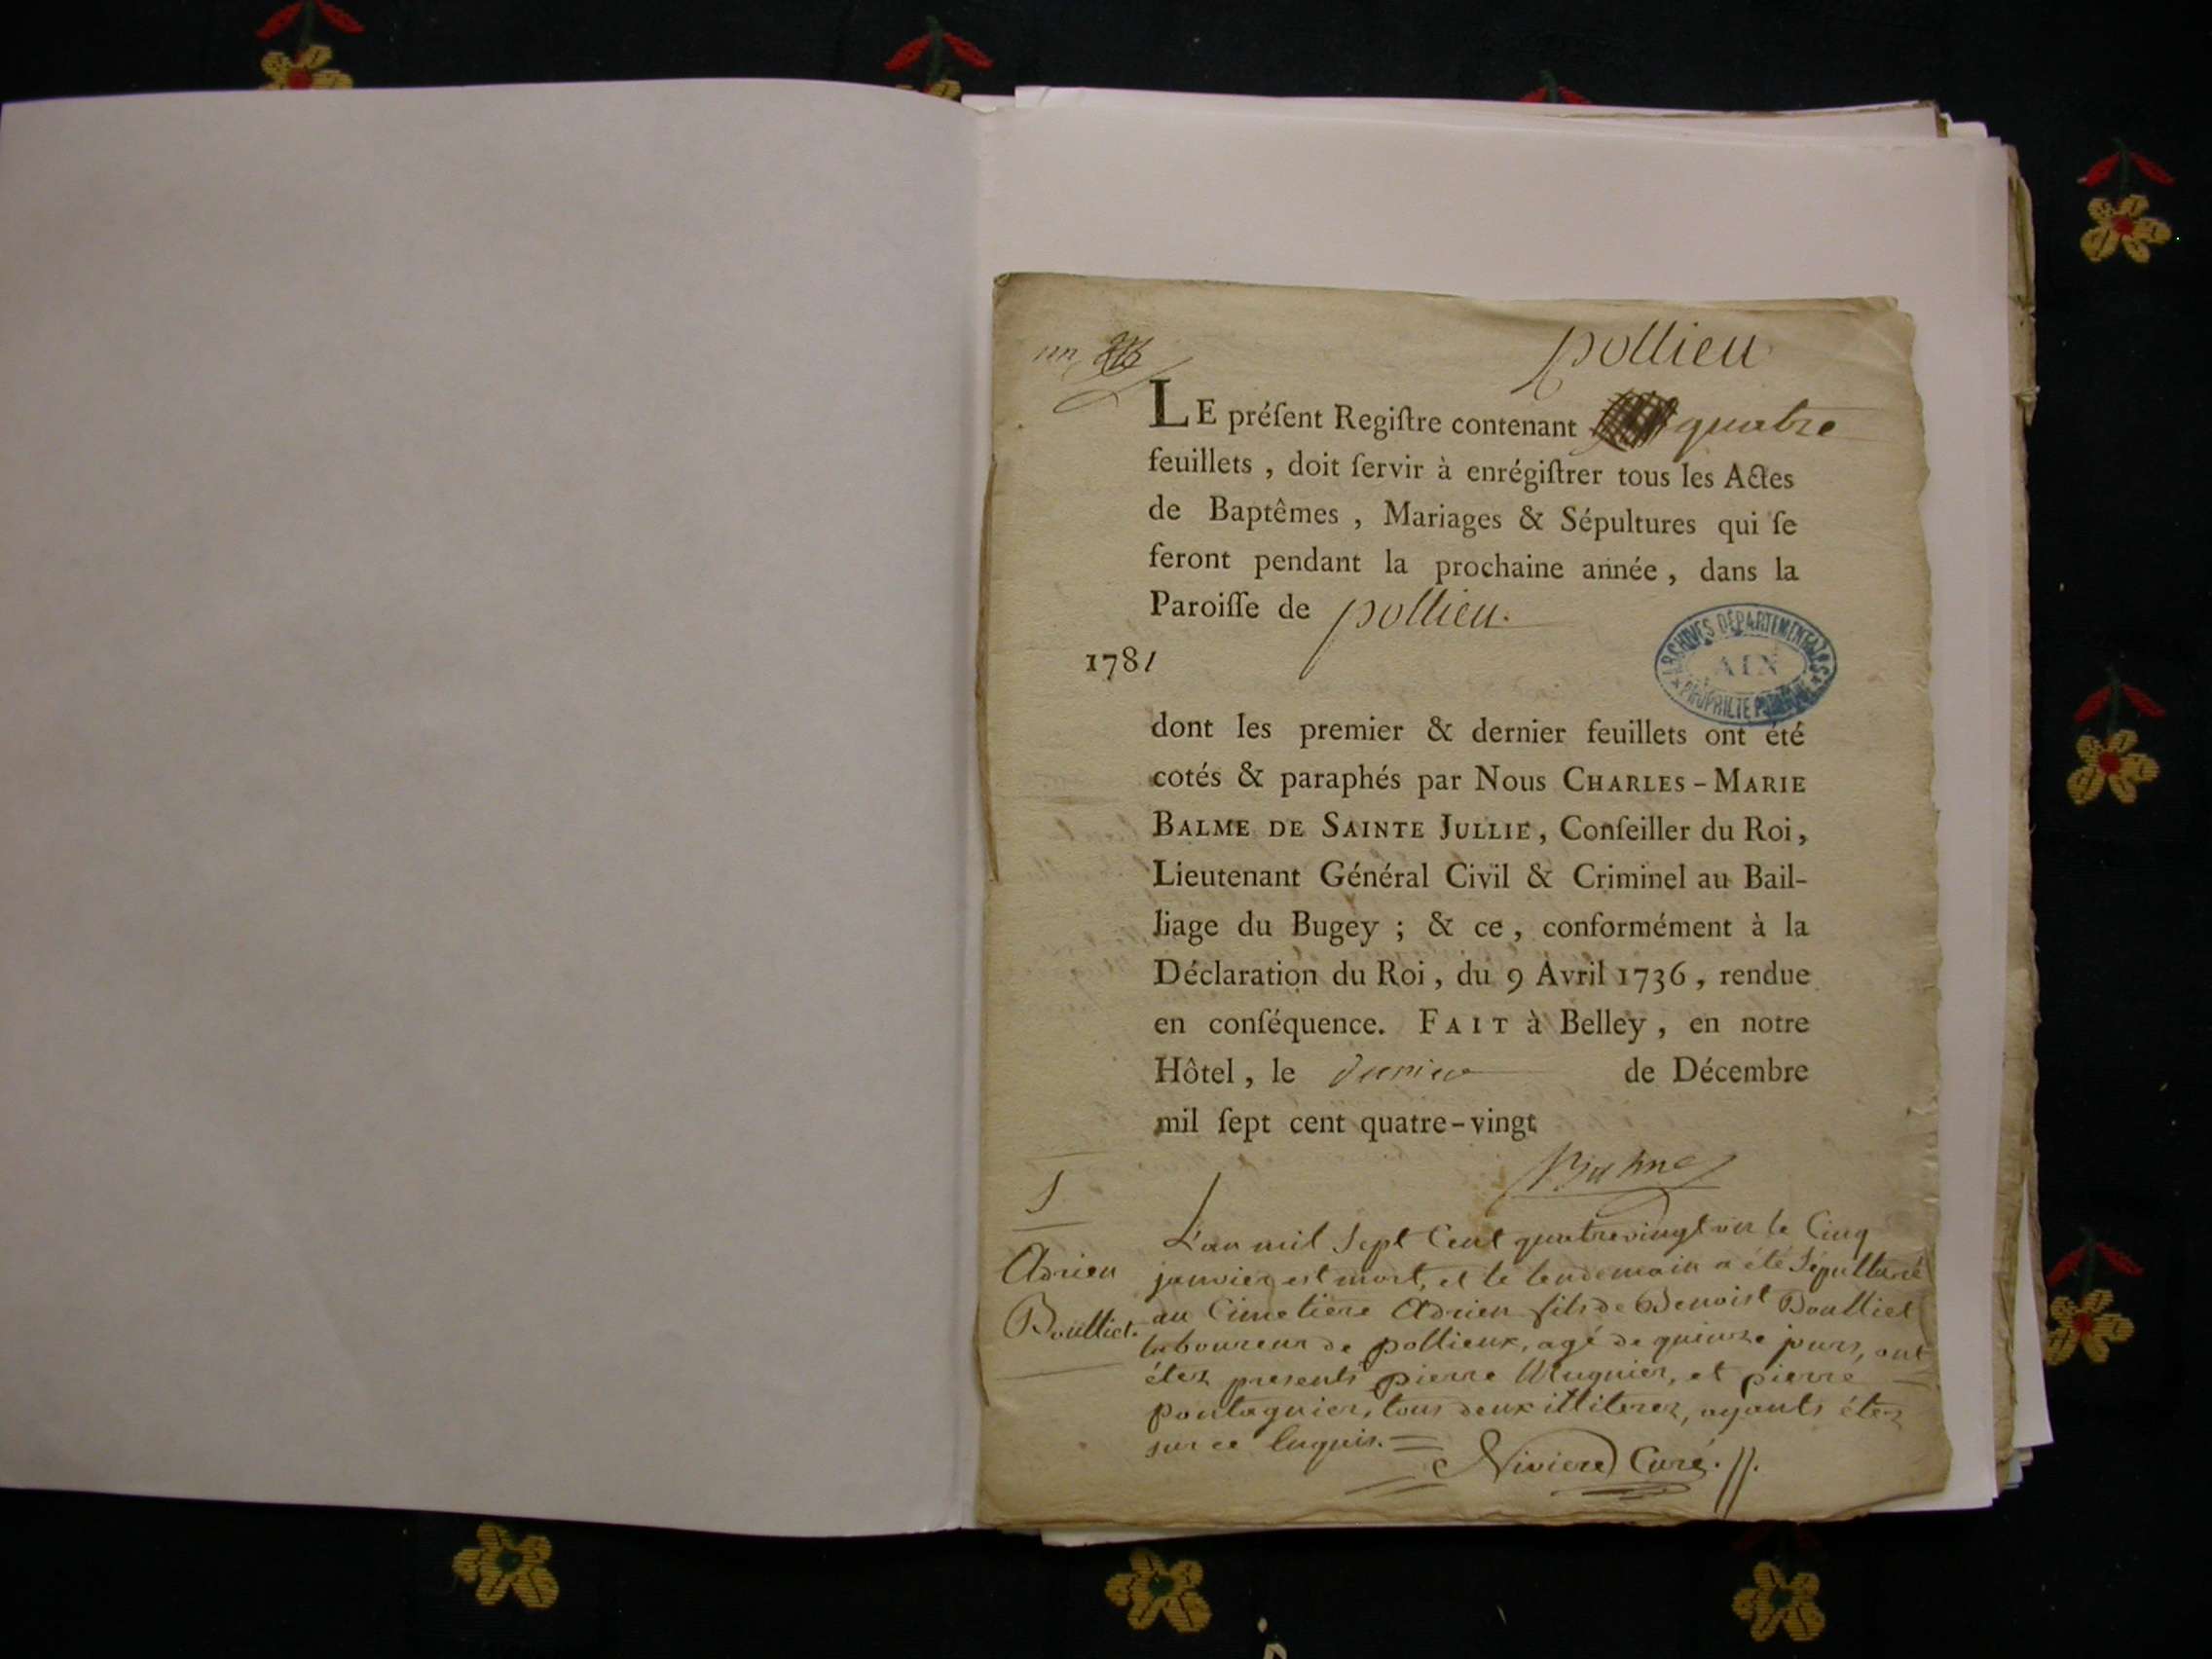 pollieu
LE préſent Regiſtre contenant quatre
feuillets , doit ſervir à enrégiſtrer tous les Actes
de Baptêmes , Mariages & Sépultures qui ſe
feront pendant la prochaine année , dans la
Paroiſſe de pollieu.
ARCHIVES DÉPARTEMENTALES
AIN
PROPRIÉTÉ PUBLIQUE
1781
dont les premier & dernier feuillets ont été
cotés & paraphés par Nous CHARLES-MARIE
BALME DE SAINTE JULLIE , Conſeiller du Roi ,
Lieutenant Général Civil & Criminel au Bail-
liage du Bugey ; & ce , conformément à la
Déclaration du Roi , du 9 Avril 1736 , rendue
en conſéquence. FAIT à Belley , en notre
Hôtel , le dernier de Décembre
mil ſept cent quatre-vingt
Balme
S
Adrien
Boulliet.
L'an mil Sept Cent quatrevingt un le Cinq
janvier est mort, et le lendemain a été Sépulturé
au Cimetiere Adrien fils de Benoist Boulliet
laboureur de pollieux, agé de quinze jours, ont
étez presents pierre Mugnier, et pierre
pontagnier, tous deux illiterez, ayants étez
sur ce Enquis.
Riviere Curé.